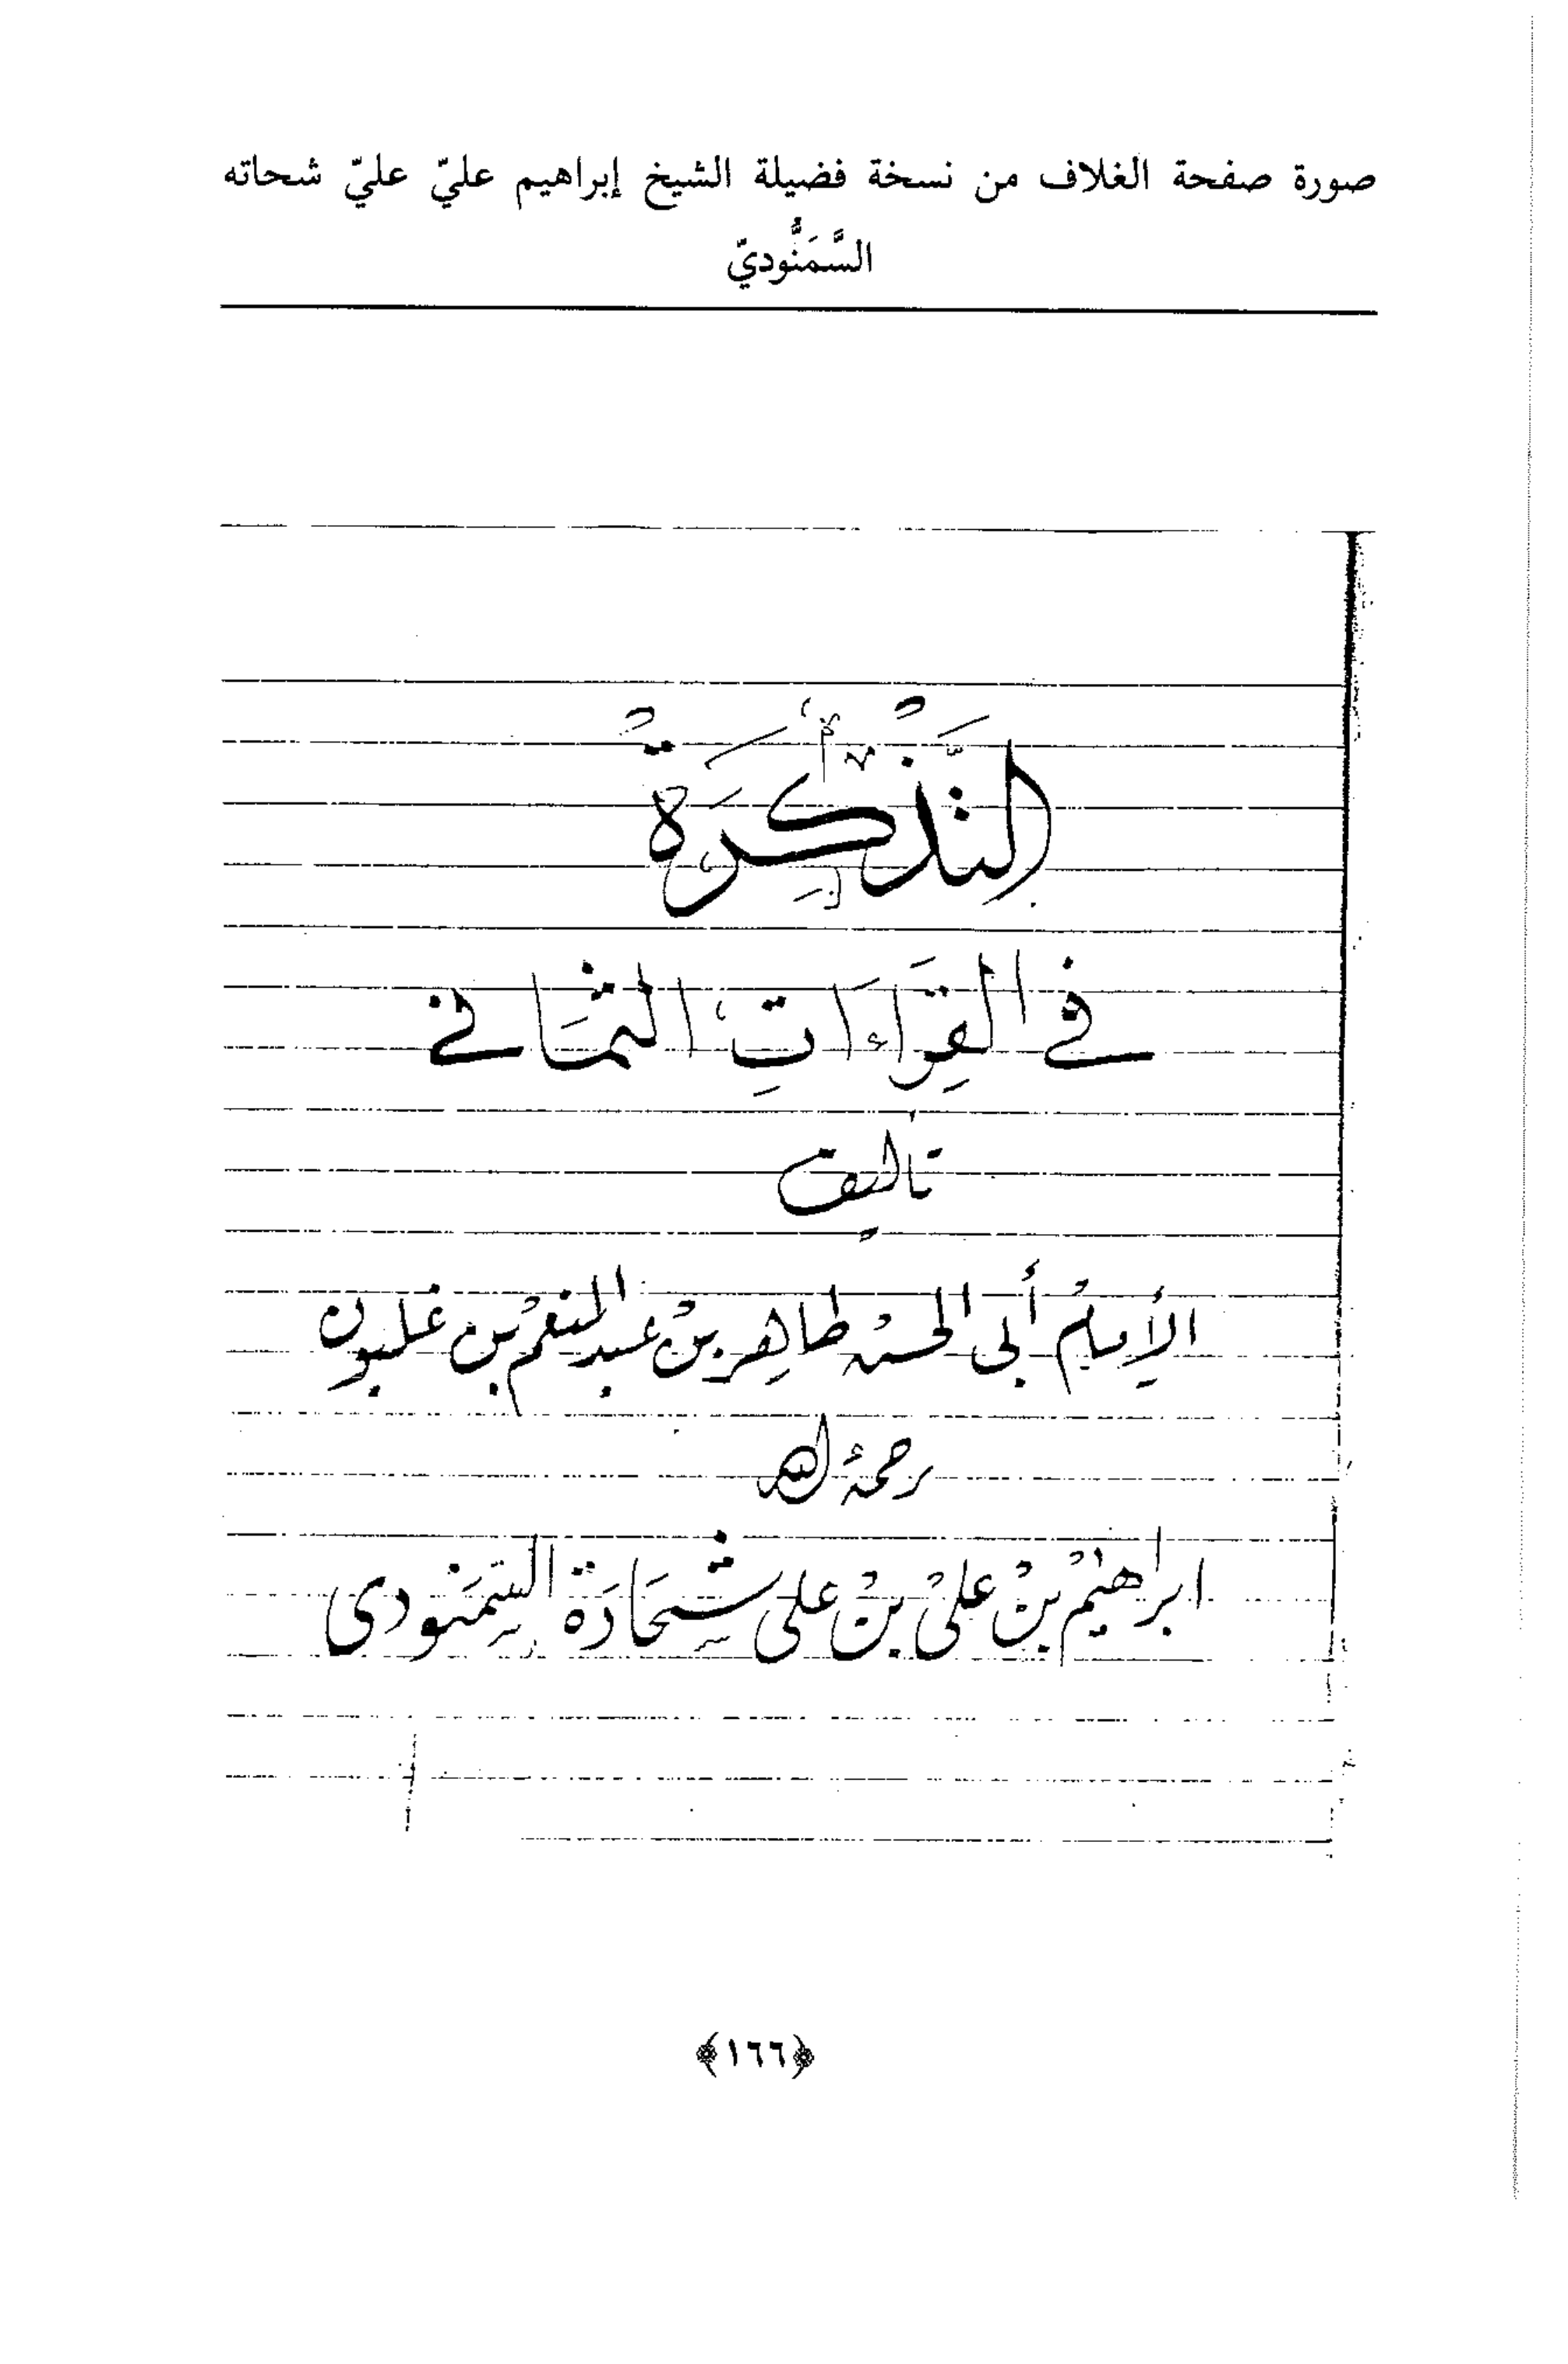 صورة صفحة الغلاف من نسخة فضيلة الشيخ إبراهيم عليّ عليّ شحاته
السَّمَنُّوديّ
التَّذْكِرَةُ
فى القِرَاءَاتِ الثَّمَانى
تأليف
الإِمامُ أبى الحسن طاهِر بنْ عبد المنعم بن غلبون
رحمهُ الله
ابراهيمْ بنْ علىْ بنْ على شِحَادَة السَّمَنودى
﴿١٦٦﴾